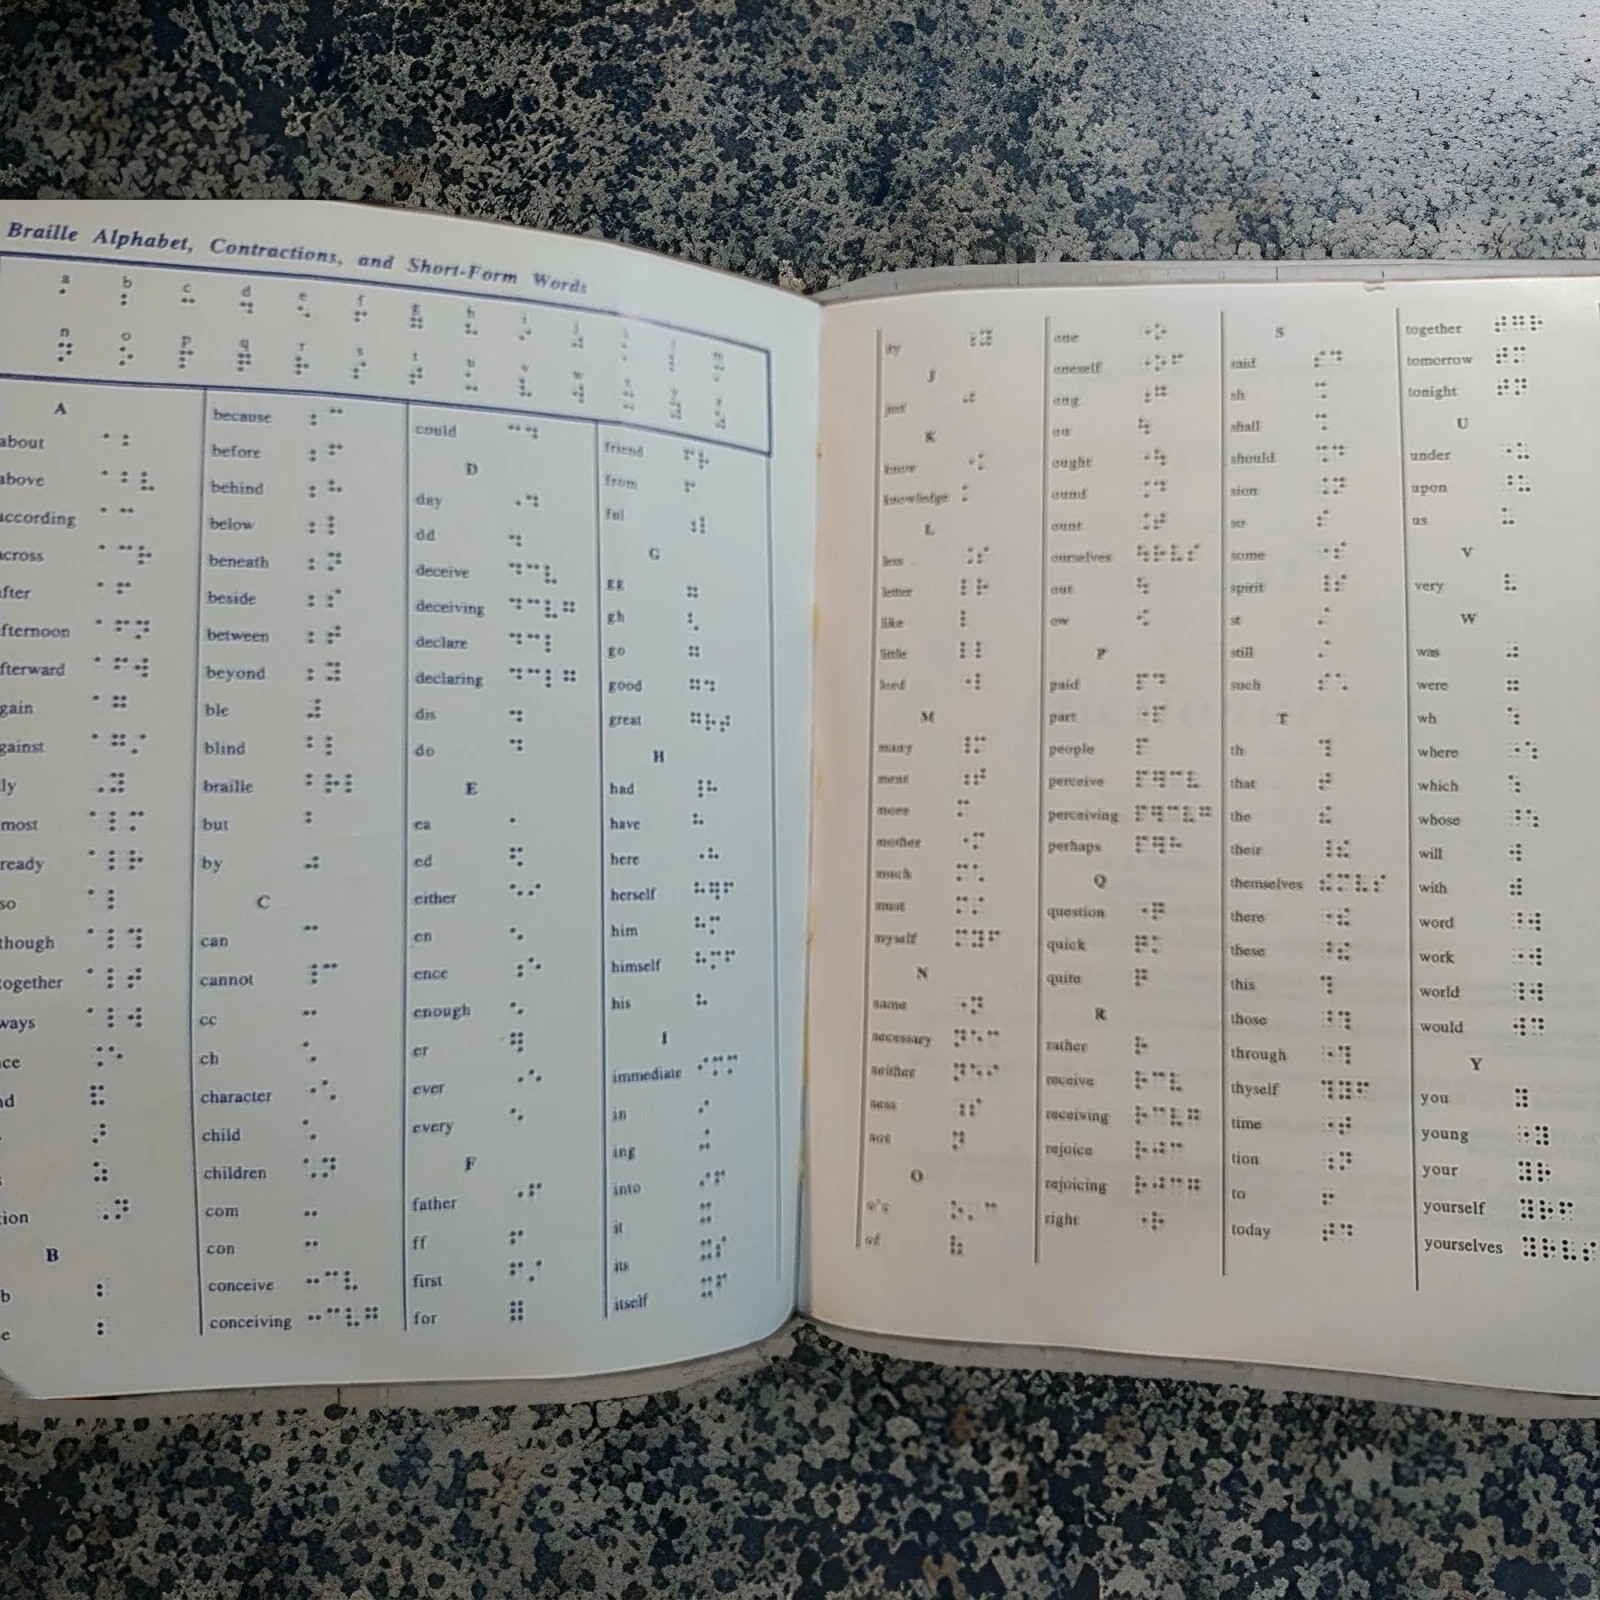 Braille Alphabet, Contractions, and Short-Form Words
a b c d e f g h i j
n o p q r s t u v w
A
about
above
according
cross
fter
fternoon
fterward
gain
gainst
ly
most
ready
so
though
ogether
ways
ce
nd
ion
B
b
e
because
before
behind
below
beneath
beside
between
beyond
ble
blind
braille
but
by
C
can
cannot
cc
ch
character
child
children
com
con
conceive
conceiving
could
D
day
dd
deceive
deceiving
declare
declaring
dis
do
E
ea
ed
either
en
ence
enough
er
ever
every
F
father
ff
first
for
friend
from
ful
G
gg
gh
go
good
great
H
had
have
here
herself
him
himself
his
I
immediate
in
ing
into
it
its
itself
ity
J
just
K
know
knowledge
L
less
letter
like
little
lord
M
many
ment
more
mother
much
must
myself
N
name
necessary
neither
ness
not
O
o'c
of
one
oneself
ong
ou
ought
ound
ount
ourselves
out
ow
P
paid
part
people
perceive
perceiving
perhaps
Q
question
quick
quite
R
rather
receive
receiving
rejoice
rejoicing
right
S
said
sh
shall
should
sion
so
some
spirit
st
still
such
T
th
that
the
their
themselves
there
these
this
those
through
thyself
time
tion
to
today
together
tomorrow
tonight
U
under
upon
us
V
very
W
was
were
wh
where
which
whose
will
with
word
work
world
would
Y
you
young
your
yourself
yourselves